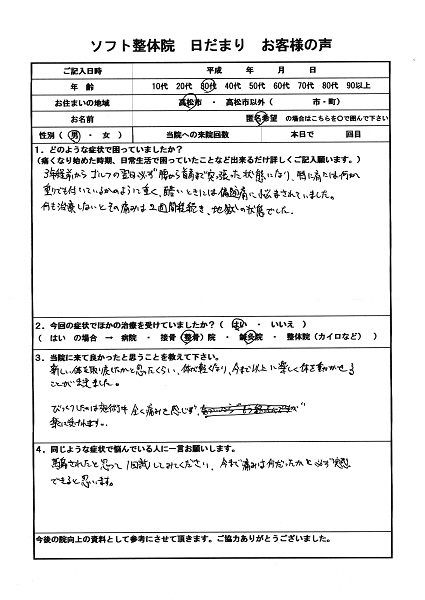 ソフト整体院　日だまり　お客様の声
ご記入日時　平成　年　月　日
年　齢　10代　20代　30代　40代　50代　60代　70代　80代　90以上
お住まいの地域　高松市　・　高松市以外（　市・町）
お名前　匿名希望　の場合はこちらを〇で囲んで下さい
性別（　男　・　女　）　当院への来院回数　本日で　回目
1．どのような症状で困っていましたか？
（痛くなり始めた時期、日常生活で困っていたことなど出来るだけ詳しくご記入願います。）
3年程前からゴルフの翌日必ず腰から首肩まで突っ張った状態になり、特に肩には何か
重りでも付いているかのように重く、酷いときには偏頭痛に悩まされていました。
何も治療しないとその痛みは2週間程続き、地獄の状態でした。
2．今回の症状でほかの治療を受けていましたか？（　はい　・　いいえ　）
（　はい　の場合　→　病院　・　接骨（整骨）院　・　鍼灸院　・　整体院（カイロなど）　）
3．当院に来て良かったと思うことを教えて下さい。
新しい体を取り戻したかと思ったくらい、体が軽くなり、今まで以上に楽しく体を動かせる
ことができました。
びっくりしたのは施術中全く痛みを感じず、
楽に受けれます。
4．同じような症状で悩んでいる人に一言お願いします。
騙されたと思って1回試してみてください、今まで痛みは何だったかと必ず実感
できると思います。
今後の院向上の資料として参考にさせて頂きます。ご協力ありがとうございました。